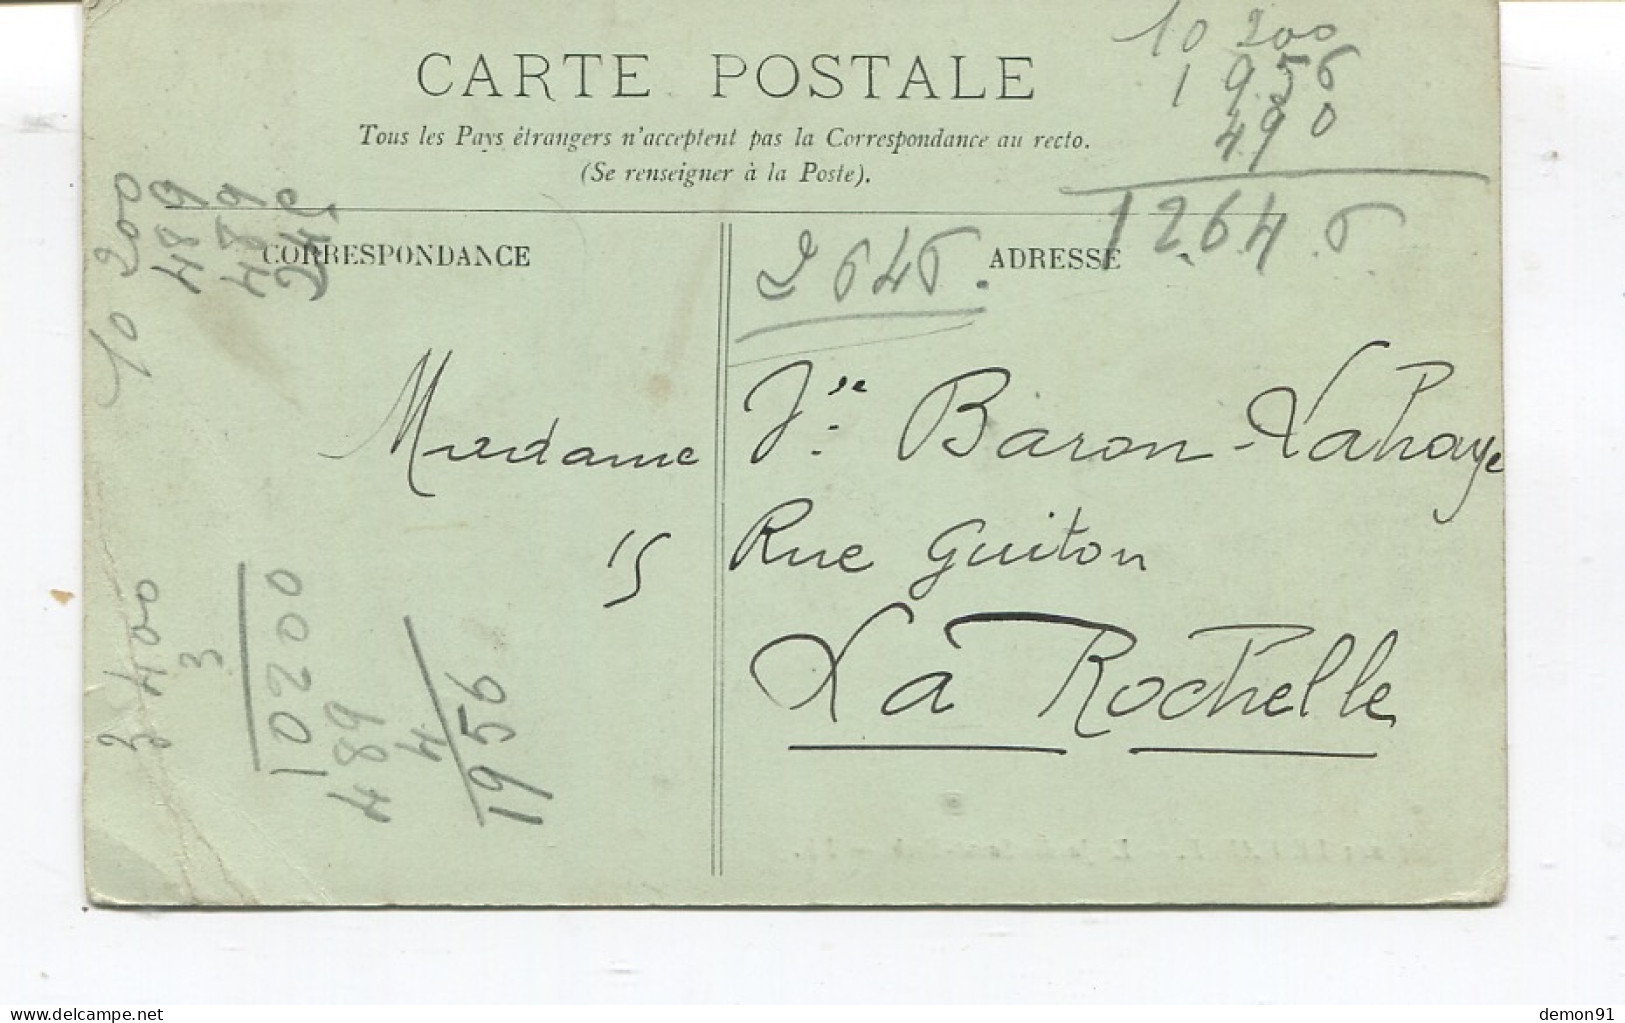 CARTE POSTALE
Tous les Pays étrangers n'acceptent pas la Correspondance au recto.
(Se renseigner à la Poste).
10 200
1 956
490
12.64.6.
CORRESPONDANCE
2646.
ADRESSE
Madame Jse Baron-Lahaye
15 Rue Guiton
La Rochelle
10 200
489
489
3400
3
10200
489
4
1956
www.delcampe.net
demon91